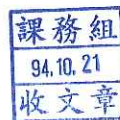 課務組
94.10.21
收文章